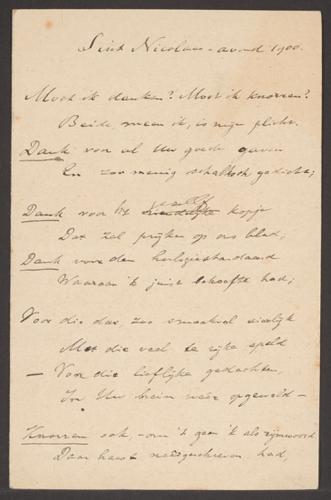 Sint Nicolaas-avond 1900.
Moet ik danken? Moet ik knorren?
Beide, meen ik, is mijn plicht.
Dank voor al Uw goede gaven
En zoo menig schalksch gedicht;
Dank voor het kopje
Dat zal prijken op ons blad;
Dank voor den horlogiestandaard
Waaraan 'k juist behoefte had;
Voor die das, zoo smaakvol sierlijk
Met die veel te rijke speld
— Voor die lieflijke gedachten,
In Uw brein weer opgeweld —
Knorren ook, — om 't geen 'k als rijmwoord
Daar haast neergeschreven had,